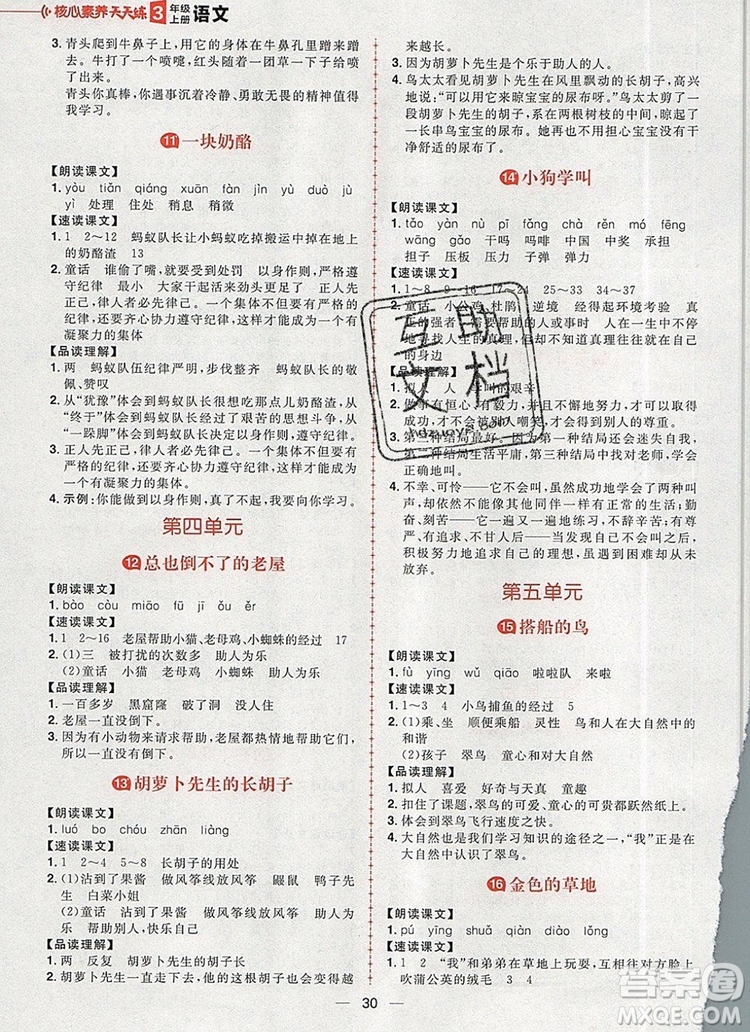 核心素养天天练 3 年级上册 语文
3. 青头爬到牛鼻子上，用它的身体在牛鼻孔里蹭来蹭
去。牛打了一个喷嚏，红头随着一团草一下子给喷
了出来。
青头你真棒，你遇事沉着冷静、勇敢无畏的精神值得
我学习。
11 一块奶酪
【朗读课文】
1. yòu tiǎn qiáng xuān fàn jìn yù duò jù
yì 处理 住处 稍息 稍微
【速读课文】
1. 1 2～12 蚂蚁队长让小蚂蚁吃掉搬运中掉在地上
的奶酪渣 13
2. 童话 谁偷了嘴，就要受到处罚 以身作则，严格遵
守纪律 大干起来 生活中我们要以身作则，严格遵
正人先正己，律人者必先律己。一个集体要有凝聚力，
还要齐心协力遵守纪律，这样的集体才是一个有
凝聚力的集体
【品读理解】
1. 两 蚂蚁队伍纪律严明，步伐整齐 蚂蚁队长的敬
佩、赞叹
2. 从“犹豫”体会到蚂蚁队长很想吃那点儿奶酪渣。从
“终于”体会到蚂蚁队长经过了艰苦的思想斗争。从
“一跺脚”体会到蚂蚁队长的以身作则，遵守纪律。
3. 正人先正己，律人者必先律己。一个集体要有凝聚
力，还要齐心协力遵守纪律，这样的集体才是一个
有凝聚力的集体。
4. 示例：你能做到以身作则，真了不起！我要向你学习。
第四单元
12 总也倒不了的老屋
【朗读课文】
1. bào còu miāo fū jī zhù ǒu è ěr
【速读课文】
1. 1 2～16 老屋帮助小猫、老母鸡、小蜘蛛的经过 17
2. (1)三 被打扰的次数多 助人为乐
(2)童话 小猫 老母鸡 小蜘蛛 助人为乐
【品读理解】
1. 一百多岁 黑窟窿 破了洞 没人居住
2. 老屋一直没有倒下。
3. 因为有小动物来请求帮助，老屋都热情地帮助了他
们，所以老屋一直没有倒下。
13 胡萝卜先生的长胡子
【朗读课文】
1. luó bo chóu zhān liàng
【速读课文】
1. 1 2～4 5～8 长胡子的用处
2. (1)沾到了果酱 做风筝线放风筝 鼹鼠 鸭子先生
白菜小姐
(2)童话 沾到了果酱 做风筝线放风筝 助人为
乐
【品读理解】
1. 两 反复 胡萝卜先生的胡子长
2. 胡萝卜先生一直走下去，他的这根胡子已变得越
来越长。
3. 因为胡萝卜先生是个乐于助人的人。
4. 鸟太太看见胡萝卜先生在风里飘动的长胡子，高兴
地说：“我总算找到绳子来晾宝宝的尿布了。”鸟太太剪了一
段胡萝卜先生的胡子，系在两根树枝的中间，给鸟
宝宝晾尿布。她再也不用担心宝宝没有干
净舒适的尿布了。
14 小狗学叫
【朗读课文】
1. tǎo yàn nù pī fǎng chǎ rěn mó fēng
wāng gǎo 干吗 吗啡 中国 中奖 承担
担子 压板 压力 子弹 弹力
【速读课文】
1. 1～8 9～16 17～24 25～33 34～37
2. 童话 小公鸡 杜鹃 逆境 经得起环境考验 真
正的强者 需要帮助的人或事时 人人都在不停地
追求，但却不知道真正追求的真理就在自己
的身边
【品读理解】
1. 拟人 人 学叫的艰辛
2. 做事有恒心、有毅力，并且不懈地努力，就能成功。
要尊重别人，才能得到别人的尊重。
3. 第三种结局最好。因为第一种结局会迷失自我，第
二种结局失去生命，第三种结局找对老师，学会
正确地叫。
4. 不幸、可怜——虽然成功地学会了两种叫声，
但是结果却很糟糕，甚至面临生命危险。勤
奋、刻苦——它一遍又一遍地练习，不辞辛苦。
积极努力——无论遇到什么困难，它都
努力地追求，追求自己的理想，虽遇困难却从未放
弃。
第五单元
15 搭船的鸟
【朗读课文】
1. fù yīng wǔ qiāo 啦啦队 来啦
【速读课文】
1. 1～3 4 小鸟捕鱼的过程 5
2. (1)乘、坐 顺便乘船 灵性 鸟和人在大自然中的
和谐
(2)孩子 翠鸟 童心和对大自然
【品读理解】
1. 拟人 喜爱 好奇与天真 童趣
2. 扣住了课题，翠鸟的可爱、童心的可爱跃然纸上。
3. 体会到翠鸟飞行速度之快。
4. 大自然也是我们学习知识的途径之一，“我”正是从
大自然中认识了翠鸟。
16 金色的草地
【朗读课文】
1. pú yīng shuǎ qiàn diào lǒng
【速读课文】
1. 1 2 “我”和弟弟在草地上玩耍，互相往对方脸上
吹蒲公英的绒毛 3 4
30
互助文档
答案圈
MXQE.COM